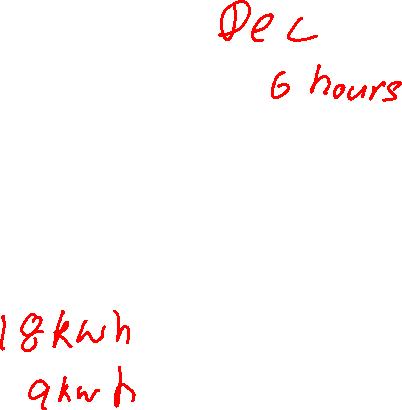 Dec
6 hours
18kwh
9kwh